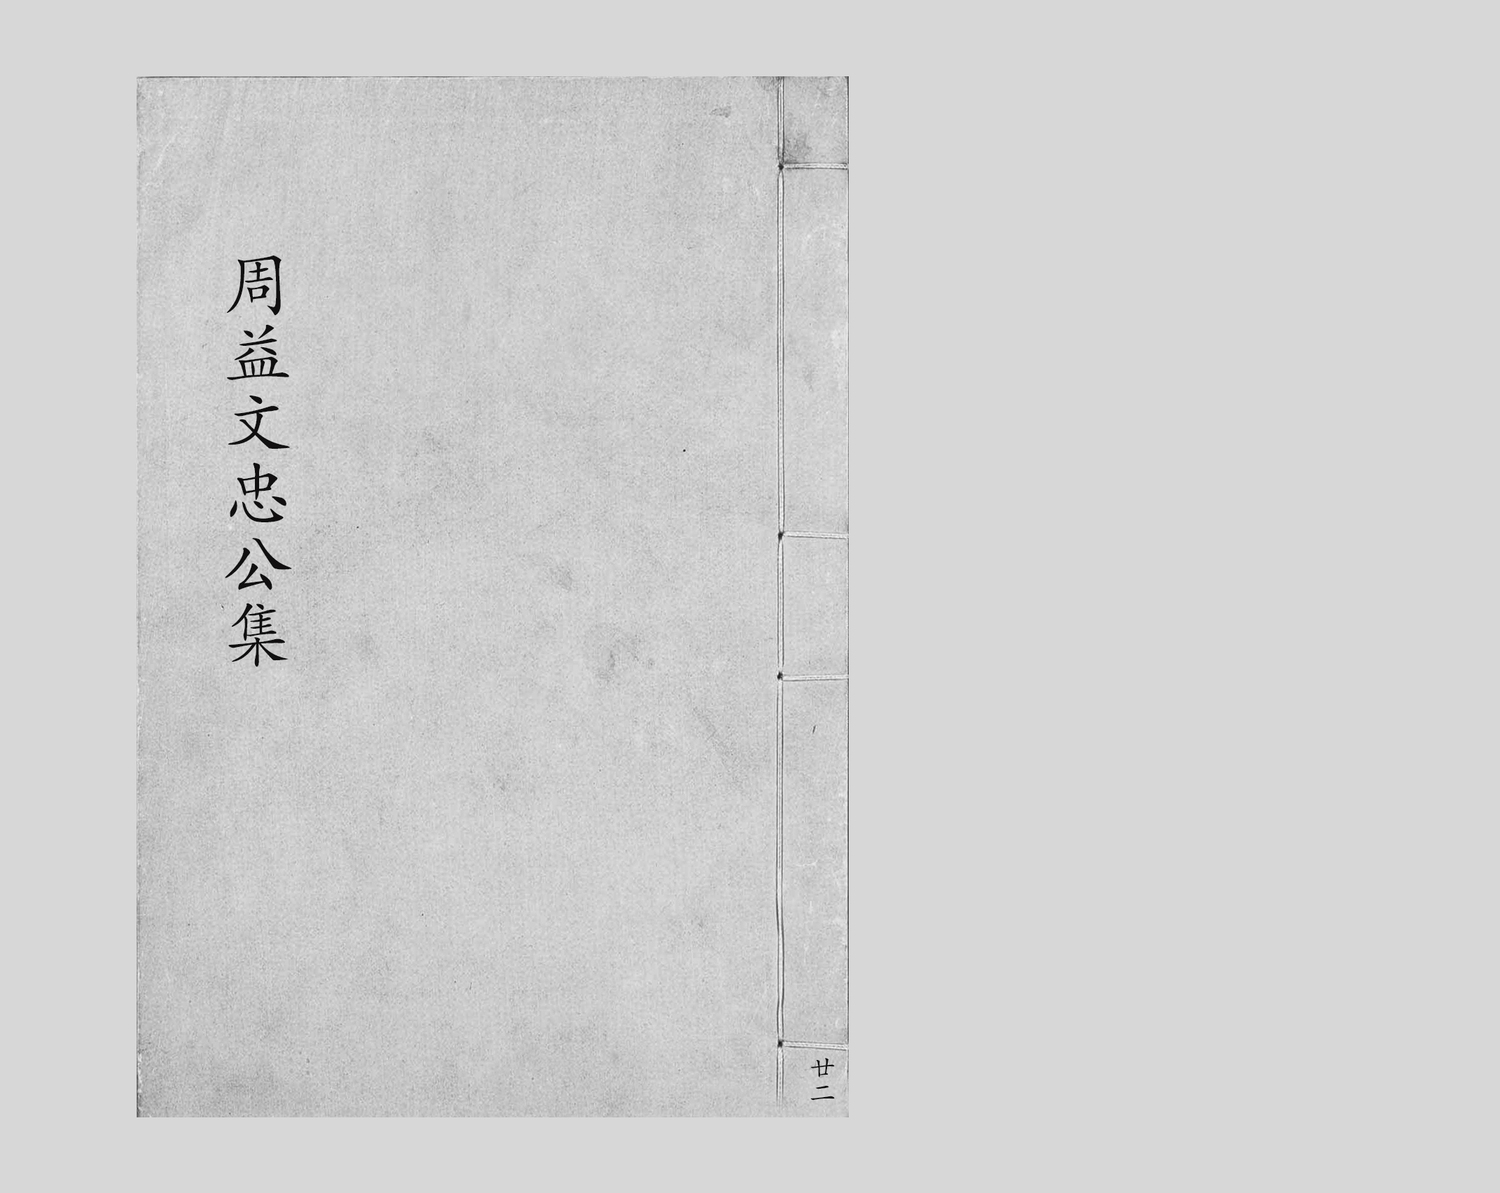 周益文忠公集
廿二